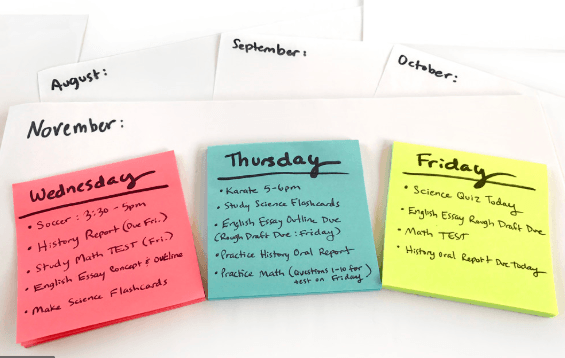 August:
September:
October:
November:
Wednesday
• Soccer : 3:30 - 5pm
• History Report (Due Fri.)
• Study Math TEST (Fri.)
• English Essay Concept & Outline
• Make Science Flashcards
Thursday
• Karate 5-6pm
• Study Science Flashcards
• English Essay Outline Due
(Rough Draft Due : Friday)
• Practice History Oral Report
• Practice Math (Questions 1-10 for
test on Friday)
Friday
• Science Quiz Today
• English Essay Rough Draft Due
• Math TEST
• History Oral Report Due Today